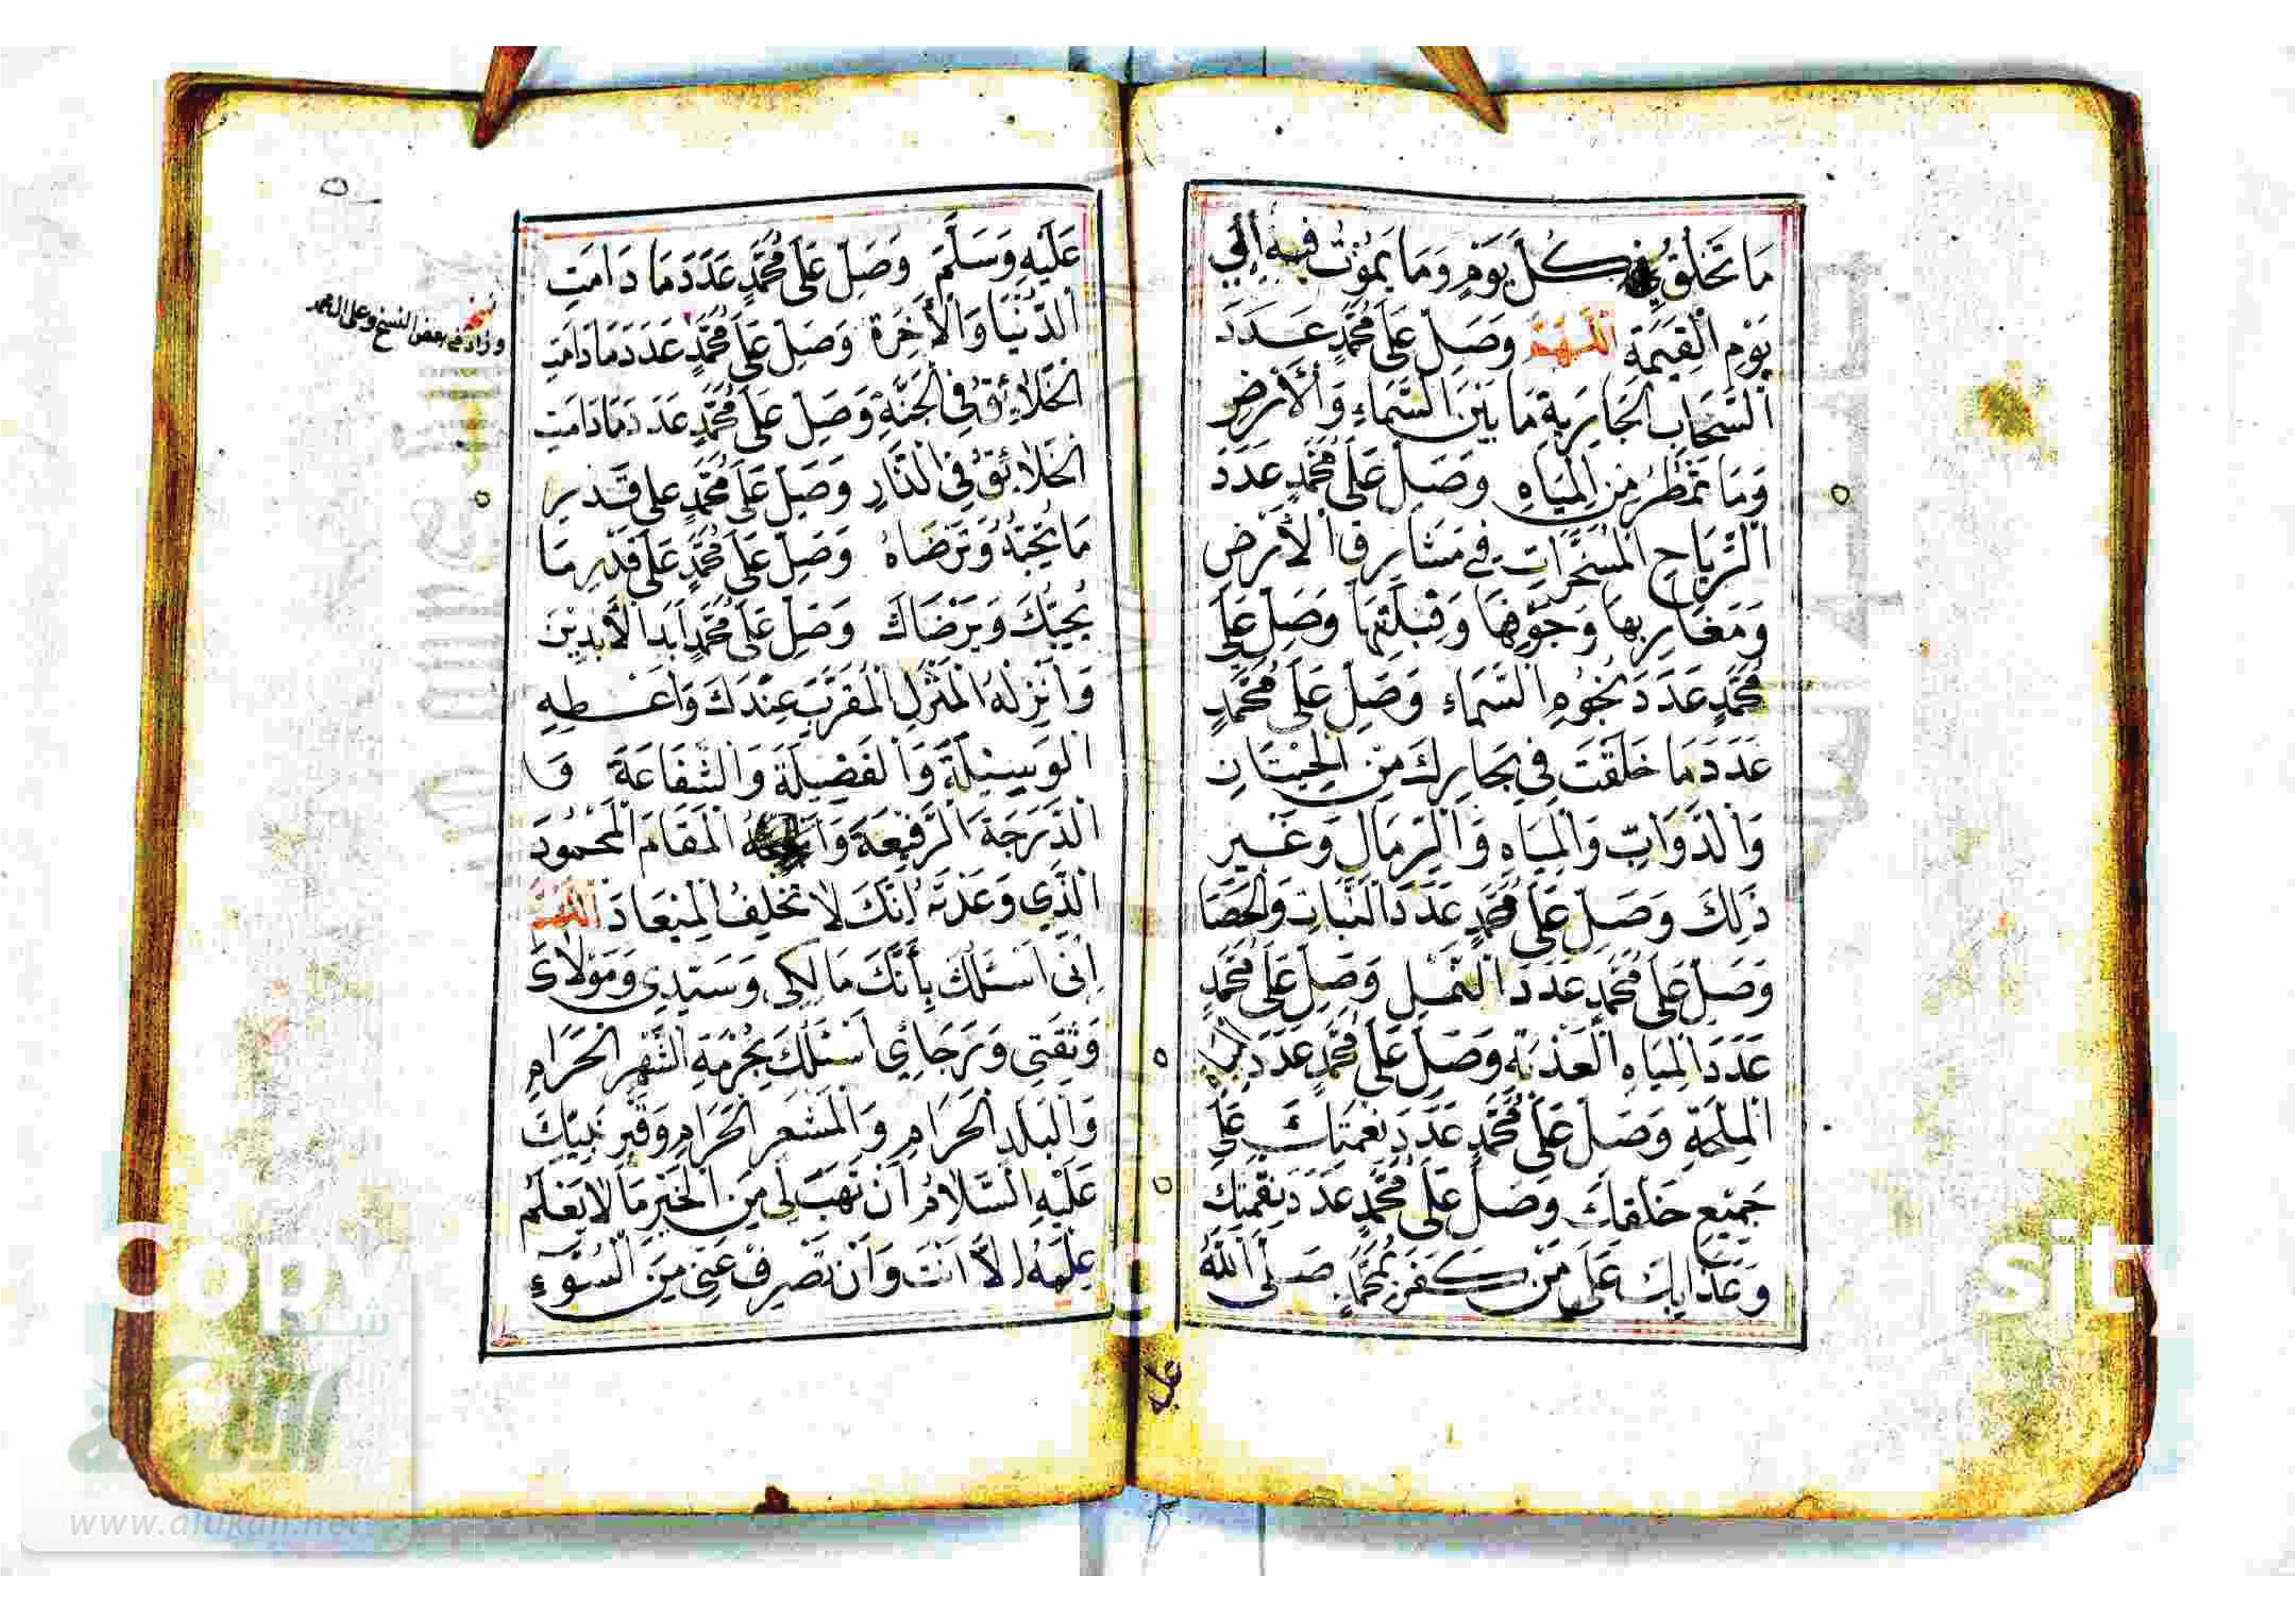 مَا تَخْلُقُ فِي كُلِّ يَوْمٍ وَمَا يَمُوْتُ فِيهِ إِلَي
يَوْمِ الْقِيٰمَةِ اَللّٰهُمَّ وَصَلِّ عَلَى مُحَمَّدٍ عَدَدَ
السَّحَابِ الْجَارِيَةِ مَا بَيْنَ السَّمَاءِ وَالْأَرْضِ
وَمَا تَمْطُرُ مِنَ الْمِيَاهِ وَصَلِّ عَلَى مُحَمَّدٍ عَدَدَ
الرِّيَاحِ الْمُسَخَّرَاتِ فِي مَشَارِقِ الْأَرْضِ
وَمَغَارِبِهَا وَجَوْفِهَا وَقِبْلَتِهَا وَصَلِّ عَلَى
مُحَمَّدٍ عَدَدَ نُجُوْمِ السَّمَاءِ وَصَلِّ عَلَى مُحَمَّدٍ
عَدَدَ مَا خَلَقْتَ فِي بِحَارِكَ مِنَ الْحِيْتَانِ
وَالدَّوَابِّ وَالْمِيَاهِ وَالرِّمَالِ وَغَيْرِ
ذٰلِكَ وَصَلِّ عَلَى مُحَمَّدٍ عَدَدَ النَّبَاتِ وَالْحَصَا
وَصَلِّ عَلَى مُحَمَّدٍ عَدَدَ النَّمْلِ وَصَلِّ عَلَى مُحَمَّدٍ
عَدَدَ الْمِيَاهِ الْعَذْبَةِ وَصَلِّ عَلَى مُحَمَّدٍ عَدَدَ الْمِيَاهِ
الْمِلْحَةِ وَصَلِّ عَلَى مُحَمَّدٍ عَدَدَ نِعْمَتِكَ عَلَى
جَمِيْعِ خَلْقِكَ وَصَلِّ عَلَى مُحَمَّدٍ عَدَدَ نِقْمَتِكَ
وَعَذَابِكَ عَلَى مَنْ كَفَرَ بِمُحَمَّدٍ صَلَّى اللّٰهُ
عليه
عَلَيْهِ وَسَلَّمَ وَصَلِّ عَلَى مُحَمَّدٍ عَدَدَ مَا دَامَتِ
الدُّنْيَا وَالْأَخِرَةُ وَصَلِّ عَلَى مُحَمَّدٍ عَدَدَ مَا دَامَتِ
الْخَلَائِقُ فِي الْجَنَّةِ وَصَلِّ عَلَى مُحَمَّدٍ عَدَدَ مَا دَامَتِ
الْخَلَائِقُ فِي النَّارِ وَصَلِّ عَلَى مُحَمَّدٍ عَلَى قَدْرِ
مَا تُحِبُّهُ وَتَرْضَاهُ وَصَلِّ عَلَى مُحَمَّدٍ عَلَى قَدْرِ مَا
يُحِبُّكَ وَيَرْضَاكَ وَصَلِّ عَلَى مُحَمَّدٍ اَبَدَ الْأَبِدِيْنَ
وَاَنْزِلْهُ الْمَنْزِلَ الْمُقَرَّبَ عِنْدَكَ وَاَعْطِهِ
الْوَسِيْلَةَ وَالْفَضِيْلَةَ وَالشَّفَاعَةَ وَا
الدَّرَجَةَ الرَّفِيْعَةَ وَابْعَثْهُ الْمَقَامَ الْمَحْمُودَ
الَّذِي وَعَدْتَهُ اِنَّكَ لَا تُخْلِفُ الْمِيْعَادَ اَللّٰهُمَّ
اِنِّي اَسْئَلُكَ بِأَنَّكَ مَالِكِي وَسَيِّدِي وَمَوْلَايَ
وَثِقَتِي وَرَجَائِي اَسْئَلُكَ بِحُرْمَةِ الشَّهْرِ الْحَرَامِ
وَالْبَلَدِ الْحَرَامِ وَالْمَشْعَرِ الْحَرَامِ وَقَبْرِ نَبِيِّكَ
عَلَيْهِ السَّلَامُ اَنْ تَهَبَ لِي مِنَ الْخَيْرِ مَا لَا يَعْلَمُ
عِلْمَهُ اِلَّا اَنْتَ وَاَنْ تَصْرِفَ عَنِّي مِنَ السُّوْءِ
وزاد في بعض النسخ وعلى ال محمد
شبكة
الألوكة
www.alukah.net